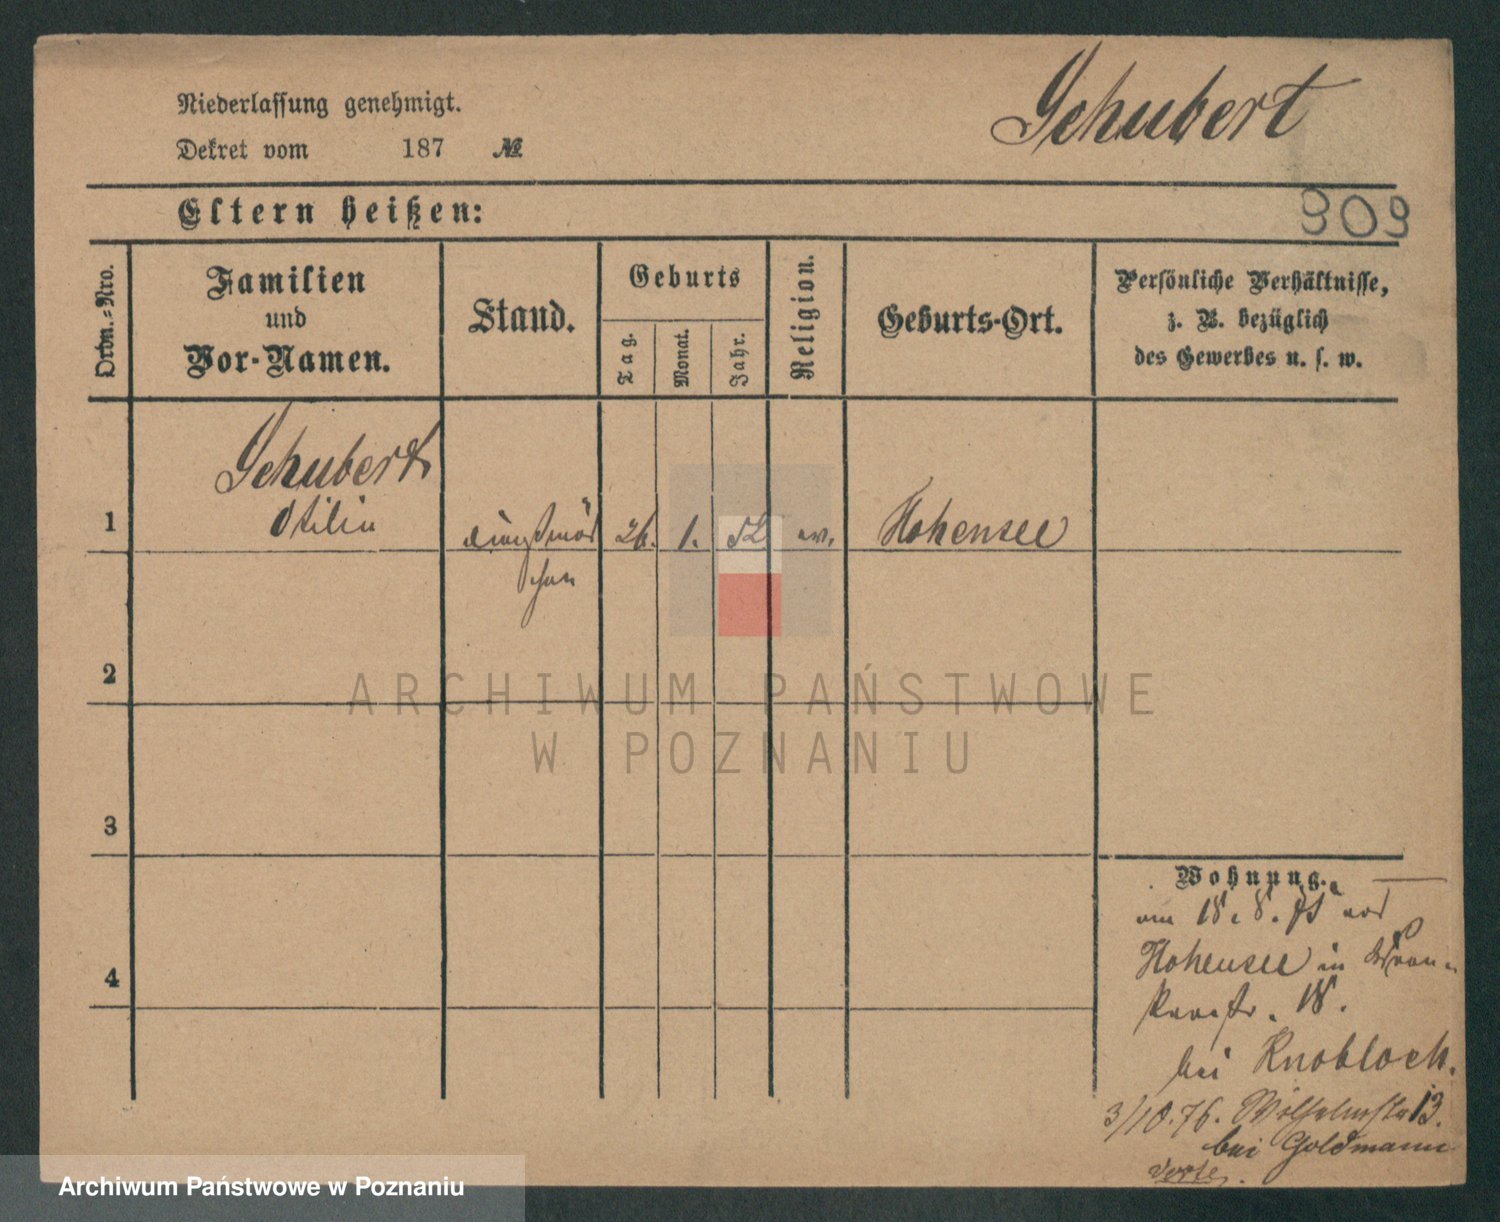 Niederlassung genehmigt.
Dekret vom 187 №
Schubert
Eltern heißen:
909
Ordn.-Nro.
Familien
und
Vor-Namen.
Stand.
Geburts
Tag.
Monat.
Jahr.
Religion.
Geburts-Ort.
Persönliche Verhältnisse,
z. B. bezüglich
des Gewerbes u. s. w.
Schubert
Otilie
1
26. 1. 52 ev. Hohensee
2
ARCHIWUM PAŃSTWOWE
W POZNANIU
3
Wohnung.
am 18. 8. 75 aus
Hohensee in
4
18.
bei Knobloch.
3/10.76. Wilhelmstr 13.
bei Goldmann
Verte.
Archiwum Państwowe w Poznaniu